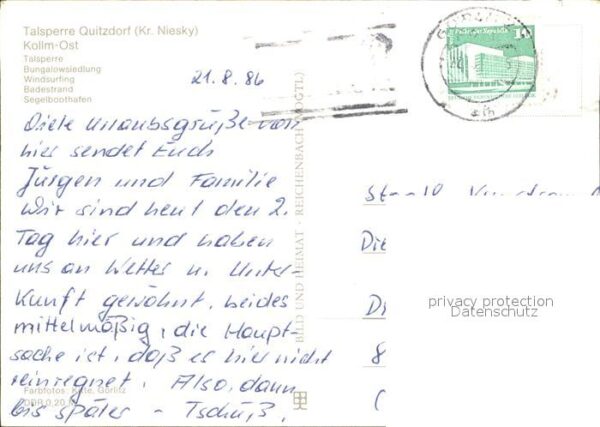 Talsperre Quitzdorf (Kr. Niesky)
Kollm-Ost
Talsperre
Bungalowsiedlung
Windsurfing
Badestrand
Segelboothafen
21.8.86
Viele Urlaubsgrüße von
hier sendet Euch
Jürgen und Familie
Wir sind heut den 2.
Tag hier und haben
uns an Wetter u. Unter-
kunft gewöhnt, beides
mittelmäßig, die Haupt-
sache ist, daß es hier nicht
reinregnet. Also, dann
bis später – Tschüß.
Farbfotos: Görlitz
DDR 0,20
BILD UND HEIMAT · REICHENBACH (VOGTL)
Palast der Republik
10
Die
8
privacy protection
Datenschutz